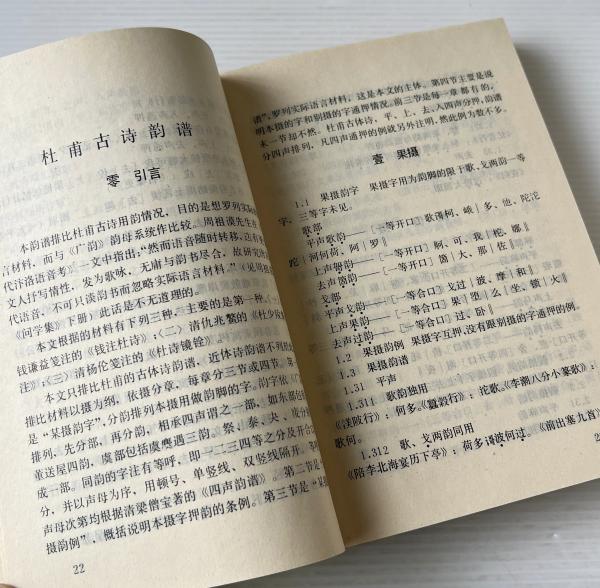 杜甫古诗韵谱
零 引言
本韵谱排比杜甫古诗用韵情况，目的是想罗列实际
言材料，而与《广韵》韵母系统作比较。周祖谟先生在
代汴洛语音考》一文中指出："然而语音随时转移，
文人抒写情性，发为歌咏，无庸与韵书尽合，故研究
代语音，不可只谈韵书而忽略实际语言材料。"（见
《问学集》下册）此话是不无道理的。
本文根据的材料有下列三种，主要的是第一种。（一）
钱谦益笺注的《钱注杜诗》；（二）清仇兆鳌的《杜少陵
注》；（三）清杨伦笺注的《杜诗镜铨》。
本文只排比杜甫的古体诗韵谱，近体诗韵谱不列
排比材料以摄为纲，依摄分章，每章分三节或四节。第
是"某摄韵字"，分韵排列本摄用做韵脚的字。韵字依
排列，先分部，再分韵，相承四声谓之一部，如东部包
董送屋四韵，虞部包括虞麌遇三韵。祭、泰、夬、废分
成一部。同韵的字注有等呼，即一二三四等之分及开合
分，并以声母为序，用顿号、单竖线、双竖线隔开。
声母次第均根据清梁僧宝著的《四声韵谱》。第二节是
摄韵例"，概括说明本摄字押韵的条例。第三节是"某
22
谱"，罗列实际语言材料，这是本文的主体。第四节主要是说
明本摄的字和别摄的字通押情况。前三节是每一章都有的，
末一节却不然。杜甫古体诗，平、上、去、入四声分押，韵谱
分四声排列，凡四声通押的例就另外注明，然此例为数不多。
壹 果摄
1.1 果摄韵字 果摄字用为韵脚的限于歌、戈两韵一等
字，三等字未见。
歌部
平声歌韵——[一等开口]歌滒柯、峨|多、他、陀沱
跎|河何荷、阿|罗‖
上声哿韵——[一等开口]舸、可、我|柁、娜‖
去声箇韵——[一等开口]箇|大、那|佐‖
戈部
平声戈韵——[一等合口]戈过|波、摩|和‖
上声果韵——[一等合口]果|堕|么|坐、锁|火‖
去声过韵——[一等合口]过、卧‖
1.2 果摄韵例 果摄字互押，没有跟别摄的字通押的例。
1.3 果摄韵谱
1.31 平声
1.311 歌韵独用
《渼陂行》：何多。《嚣毅行》：沱歌。《李潮八分小篆歌》：
歌何。
1.312 歌、戈两韵同用
《陪李北海宴历下亭》：荷多诵波何过。《前出塞九首》